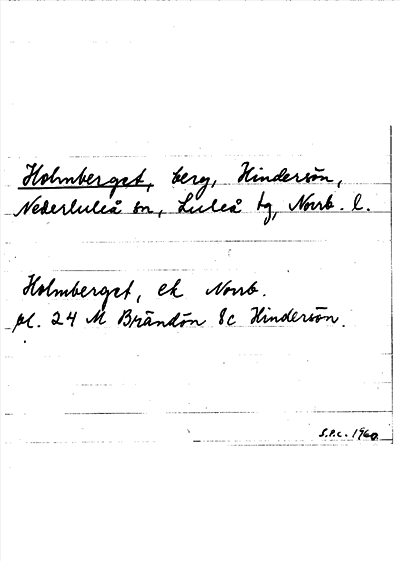 Holmberget, berg, Hindersön,
Nederluleå sn, Luleå tg, Norrb. l.
Holmberget, ek Norrb.
pl. 24 M Brändön 8c Hindersön.
S.P.C. 1960